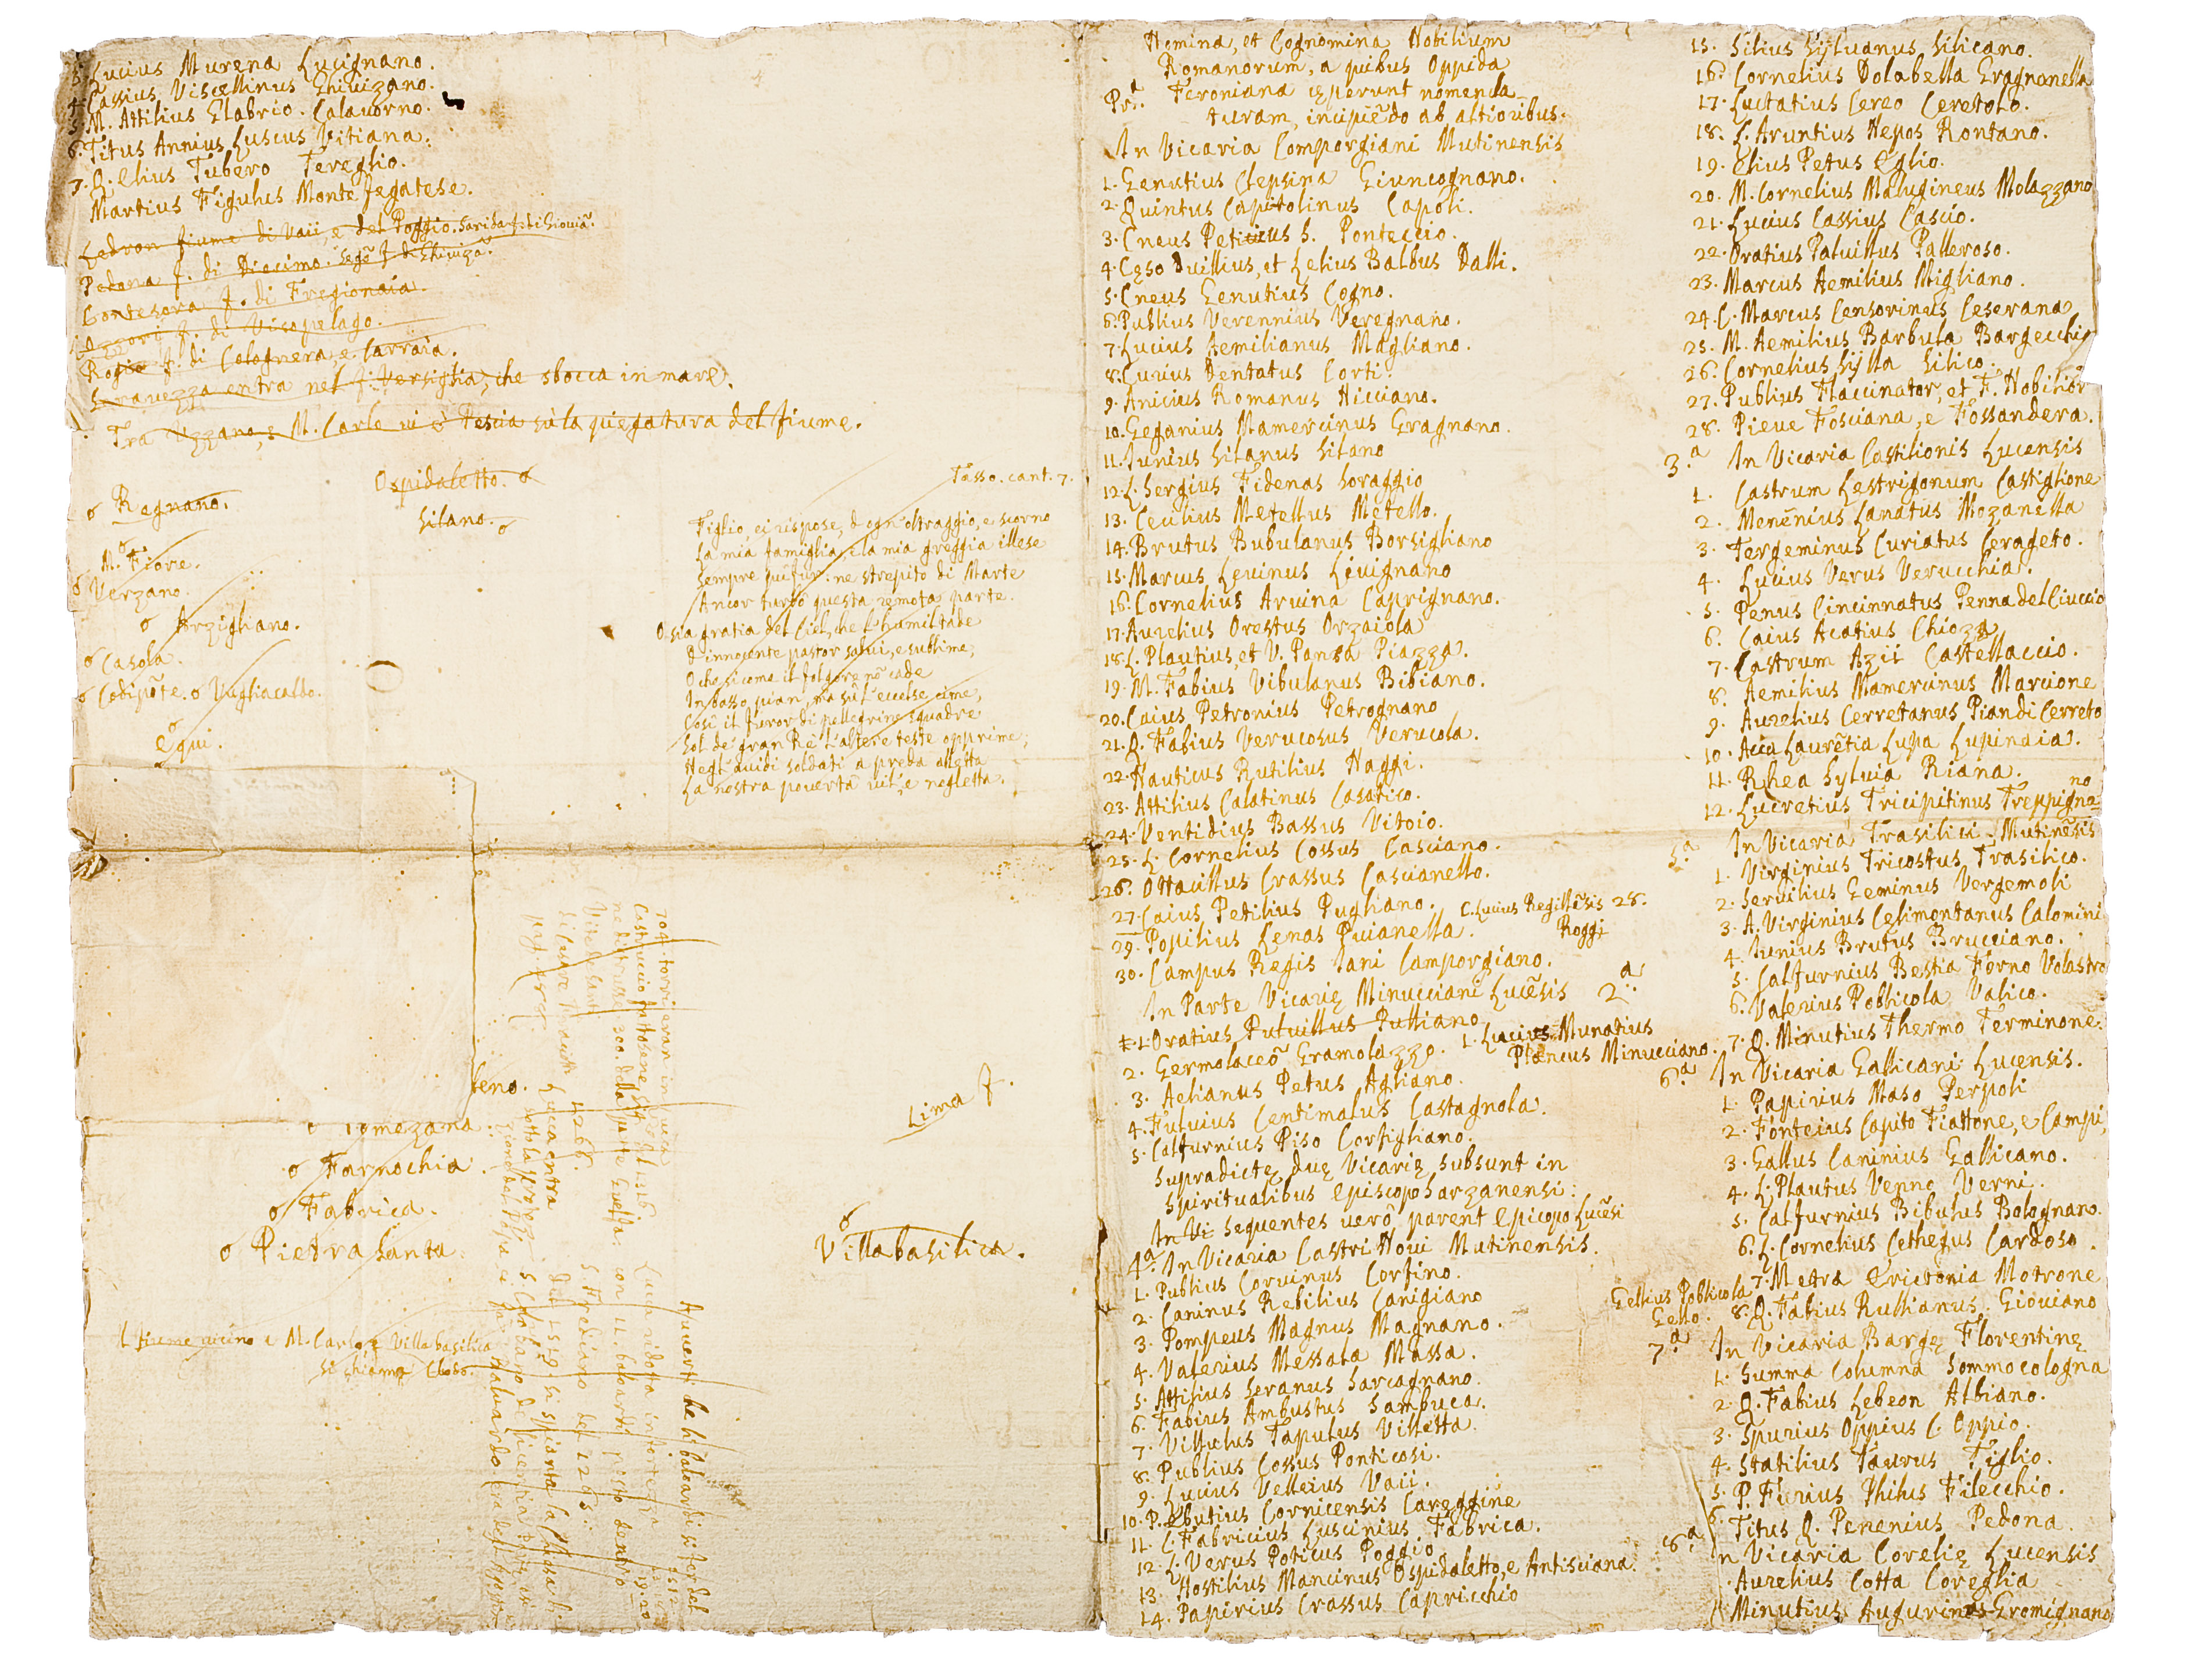 3. Lucius Murena Lucignano.
4. Cassius Viscellinus Ghivizano.
5. M. Attilius Glabrio. Calavorno.
6. Titus Annius Luscus Vitiana.
7. Q. Elius Tubero Tereglio.
Martius Figulus Monte fegatese.
Pedona f. di Diecimo.
Contesora f. di Fregionaia.
f. di Vicopelago.
Rogio f. di Colognera, e Carraia.
Seravezza entra nel f. Versiglia, che sbocca in mare.
Tra Uzzano, e M. Carlo vi è Pescia sù la piegatura del fiume.
Ospidaletto. o
o Regnano.
Silano. o
M. Fiore.
o Verzano.
o Arzigliano.
o Casola.
o Codipõte. o Vugliacaldo.
o
Equi.
Tasso. cant. 7.
Figlio, ei rispose, d'ogn'oltraggio, e scorno
La mia famiglia, e la mia greggia illese
Sempre quì fur: ne strepito di Marte
Ancor turbò questa remota parte.
O sia gratia del Ciel, che l'humiltade
D'innocente pastor salvi, e sublime;
O che sicome il folgore nõ cade
In basso pian, ma sù l'eccelse cime,
Così il furor di pellegrine squadre
Sol de' gran Rè l'altere teste opprime;
Ne gl'avidi soldati a preda alletta
La nostra povertà vil, e negletta.
leno.
o Farnochia.
o Fabrica.
o Pietra Santa.
Lima f.
o
Villabasilica.
Il fiume vicino a M. Carlo, e Villabasilica
si chiama
Avverti che li baloardi
Nomina, et Cognomina Nobilium
Romanorum, a quibus Oppida
Pr.ª Feroniana cęperunt nomencla
turam, incipiẽdo ab altioribus.
In Vicaria Comporgiani Mutinensis
1. Genutius Clepsina Giuncognano.
2. Quintus Capitolinus Capoli.
3. Cneus Peticius S. Ponteccio.
4. Cęso Duillius, et Lelius Balbus Dalli.
5. Cneus Genutius Cogno.
6. Publius Verennius Veregnano.
7. Lucius Aemilianus Magliano.
8. Curius Dentatus Corti.
9. Anicius Romanus Nicciano.
10. Geganius Mamercinus Gragnano.
11. Iunius Silanus Silano
12. L. Sergius Fidenas Soraggio
13. Cecilius Metellus Metello.
14. Brutus Bubulanus Borsigliano
15. Marcus Levinus Livignano
16. Cornelius Arvina Caprignano.
17. Aurelius Orestus Orzaiola
18. L. Plautius, et V. Pansa Piazza.
19. M. Fabius Vibulanus Bibiano.
20. Caius Petronius Petrognano
21. Q. Fabius Verucosus Verucola.
22. Nauticus Rutilius Naggi.
23. Attilius Calatinus Casatico.
24. Ventidius Bassus Vitoio.
25. L. Cornelius Cossus Casciano.
26. Ottacillus Crassus Cascianello.
27. Caius Petilius Pugliano. C. Lucius Regillẽsis 28.
Roggi
29. Popilius Lenas Puianella.
30. Campus Regis Iani Camporgiano.
In Parte Vicarię Minucciani Lucẽsis 2.ª
1. Oratius Putuillus Pulliano 1. Lucius Munatius
Plancus Minucciano.
2. Germolaceõ Gramolazzo.
3. Aelianus Petus Agliano.
4. Fulvius Centimalus Castagnola.
5. Calfurnius Piso Corfigliano.
Supradictę duę Vicarię subsunt in
Spiritualibus Episcopo Sarzanensi:
In Vi Sequentes verò parent Epicopo Lucẽsi
4ª In Vicaria Castri Novi Mutinensis.
1. Publius Corvinus Corfino.
2. Caninus Rebilius Canigiano
3. Pompeus Magnus Magnano.
4. Valerius Messala Massa.
5. Attilius Seranus Sarcagnano.
6. Fabius Ambustus Sambuca.
7. Villulus Tapulus Villetta.
8. Publius Cossus Ponticosi.
9. Lucius Velleius Vaii.
10. P. Ebutius Cornicensis Careggine
11. C. Fabricius Luscinius Fabrica.
12. L. Verus Poticus Poggio
13. Hostilius Mancinus Ospidaletto, e Antisciana.
14. Papirius Crassus Capricchio
15. Silius Sylvanus Silicano.
16. Cornelius Dolabella Gragnanella
17. Luctatius Cereo Ceretolo.
18. L. Aruntius Nepos Rontano.
19. Elius Petus Eglio.
20. M. Cornelius Malugineus Molazzano
21. Lucius Cassius Cascio.
22. Oratius Patuillus Palleroso.
23. Marcus Aemilius Migliano.
24. C. Marcus Censorinus Ceserana
25. M. Aemilius Barbula Bargecchia
26. Cornelius Sylla Silico.
27. Publius Flaccinator, et F. Nobilior
28. Pieve Fosciana, e Fossandera.
3.ª In Vicaria Castilionis Lucensis
1. Castrum Lestrigonum Castiglione
2. Menẽnius Lanatus Mozanella
3. Tergeminus Curiatus Cerageto.
4. Lucius Verus Verucchia.
5. Penus Cincinnatus Penna del Ciuccio
6. Caius Acatius Chioza
7. Castrum Azii Castellaccio.
8. Aemilius Mamercinus Marcione
9. Aurelius Cerretanus Pian di Cerreto
10. Acca Laurẽtia Lupa Lupinaia.
11. Rhea Sylvia Riana.
12. Lucretius Tricipitinus Treppigna=
no
5.ª In Vicaria Trasilici Mutinẽsis
1. Virginius Tricostus Trasilico.
2. Servilius Geminus Vergemoli
3. A. Virginius Celimontanus Calomini
4. Iunius Brutus Brucciano.
5. Calfurnius Bestia Forno Volastro
6. Valerius Poblicola Valico.
7. Q. Minutius Thermo Terminone.
6.ª In Vicaria Gallicani Lucensis.
1. Papirius Maso Perpoli
2. Fonteius Capito Fiattone, e Campi,
3. Gallus Caninius Gallicano.
4. L. Plautus Venno Verni.
5. Calfurnius Bibulus Bolognano.
6. L. Cornelius Cethegus Cardoso.
7. Metra Erictonia Motrone
Gellius Poblicola
Gello. 8. Q. Fabius Rullianus. Gioviano
7.ª In Vicaria Bargę Florentinę
1. Summa Columna Sommocologna
2. Q. Fabius Lebeon Albiano.
3. Spurius Oppius C. Oppio.
4. Statilius Taurus Tiglio.
5. P. Furius Philus Filecchio.
6. Titus Q. Penenius Pedona.
8.ª In Vicaria Corelię Lucensis
Aurelius Cotta Coreglia
Minutius Augurinus Gromignano